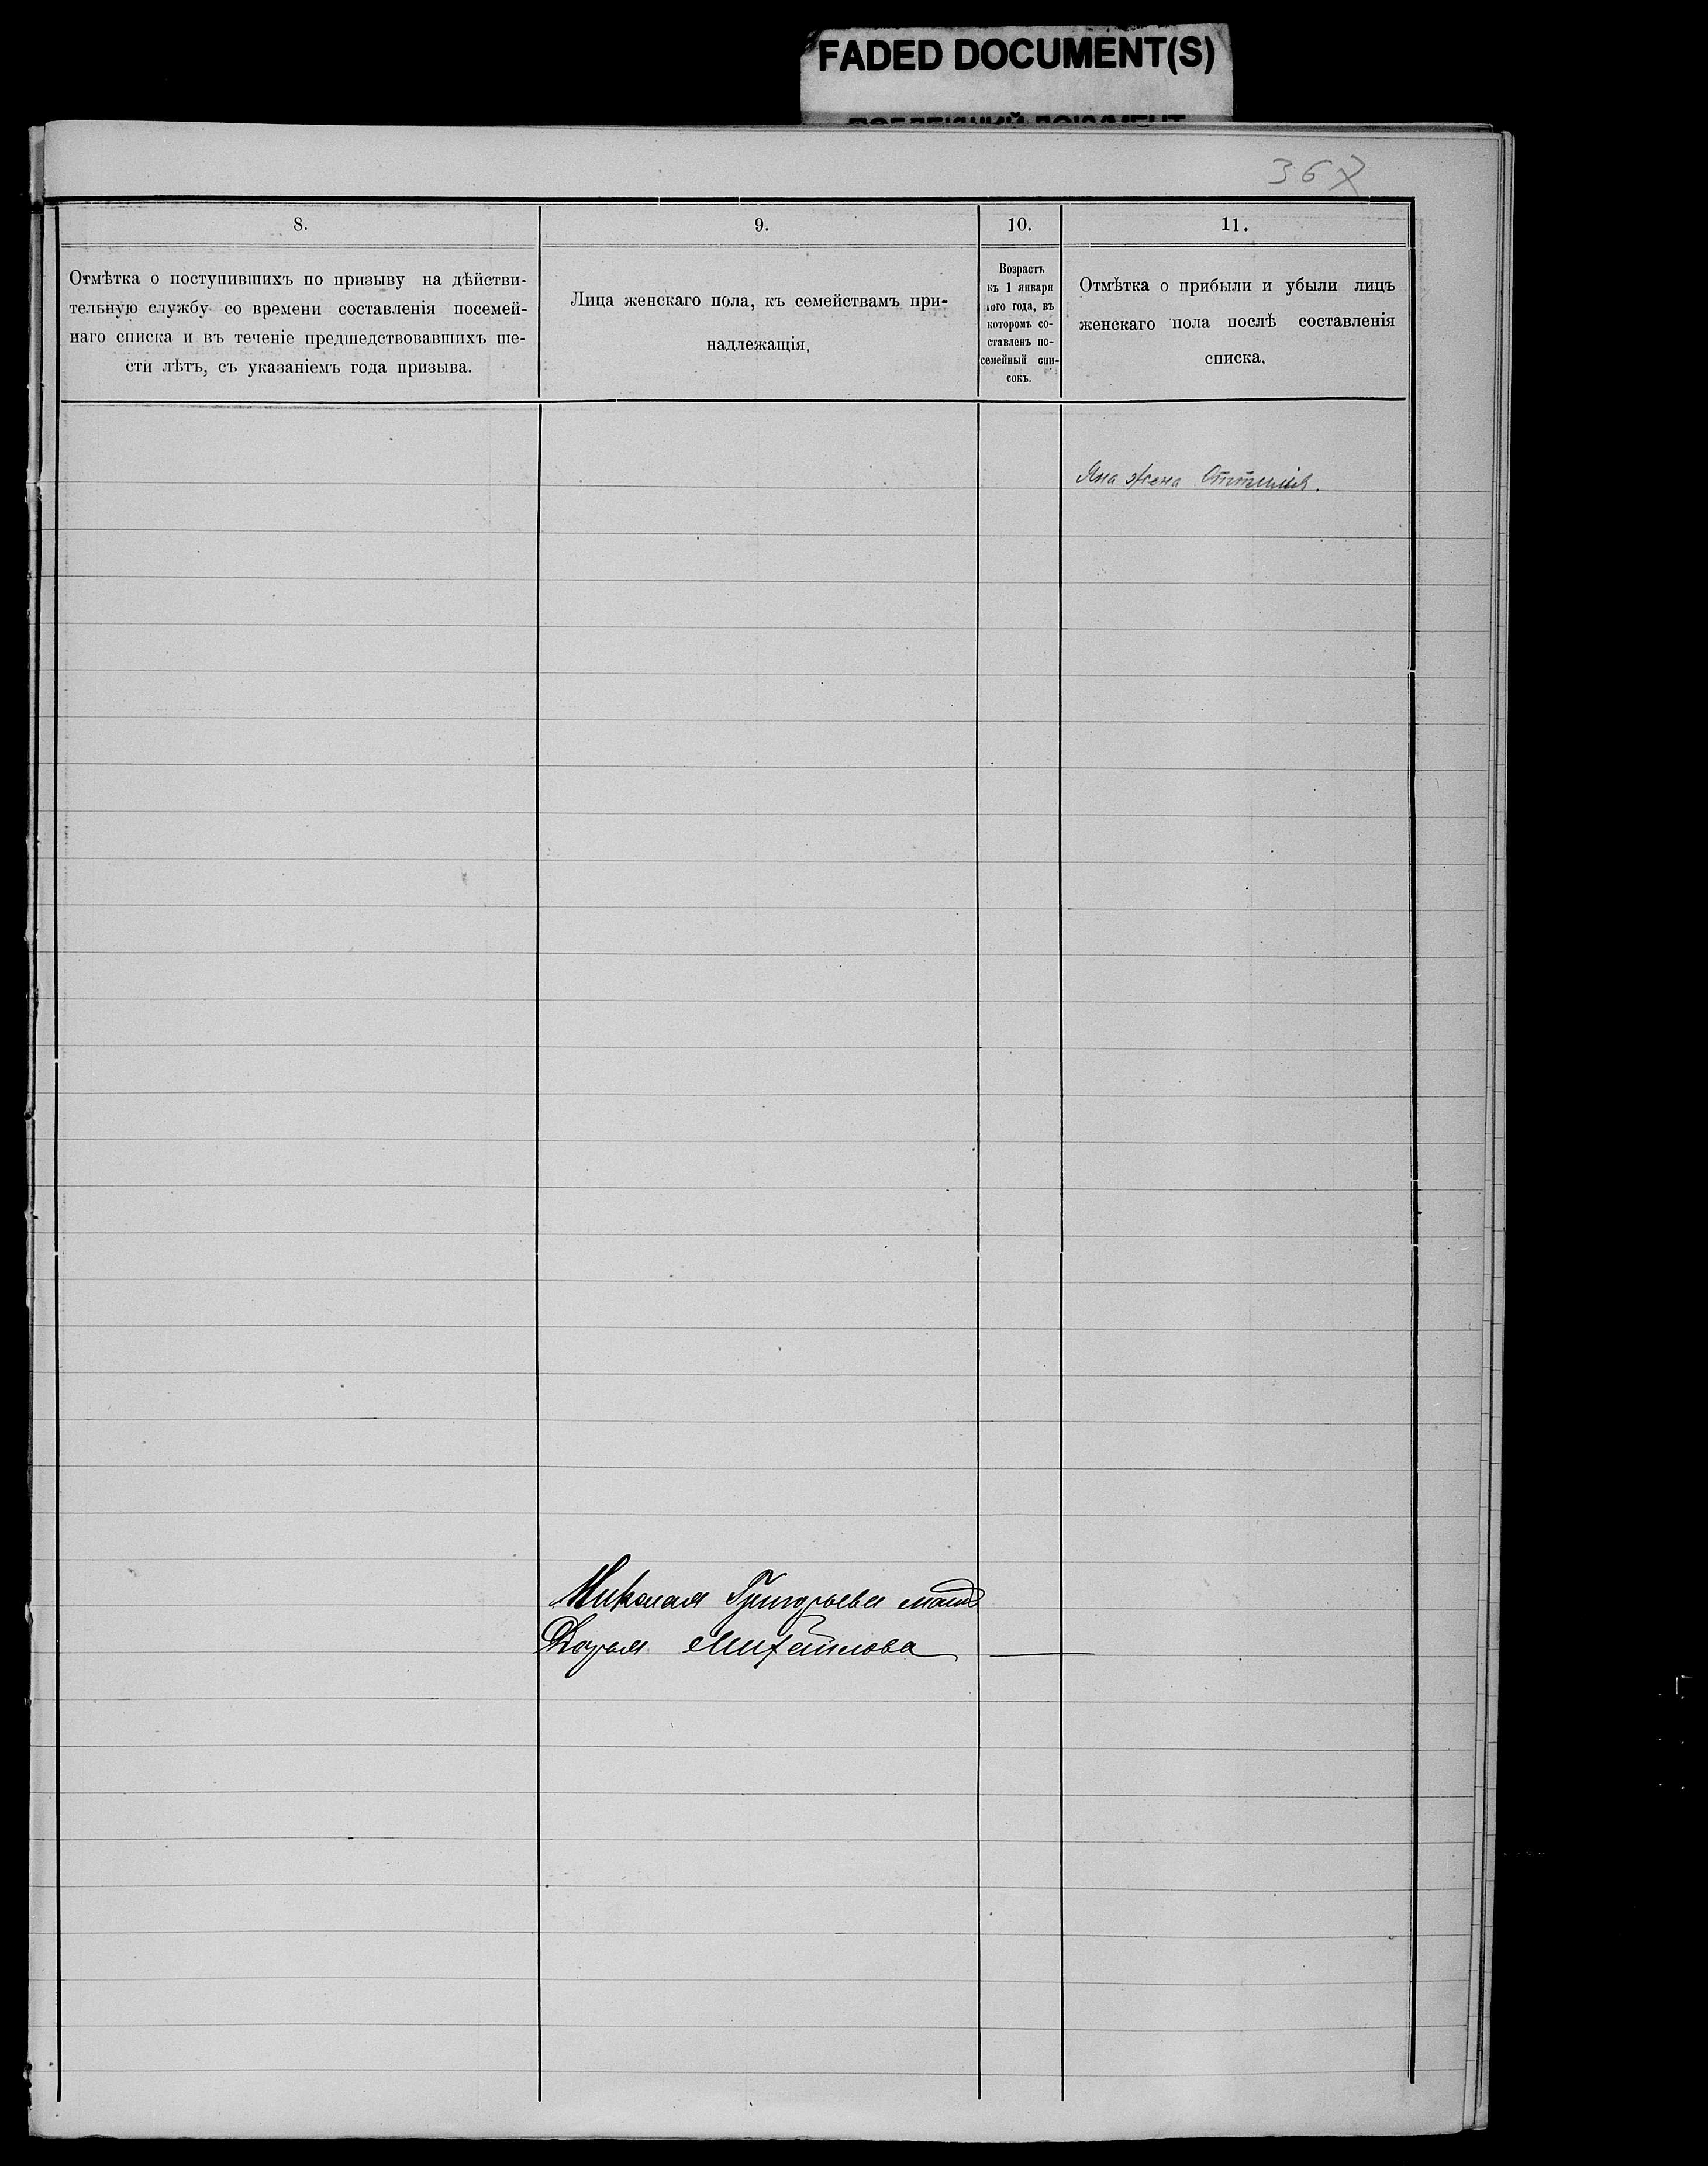 FADED DOCUMENT(S)
367
8.
9.
10.
11.
Отмѣтка о поступившихъ по призыву на дѣйстви-
тельную службу со времени составленія посемей-
наго списка и въ теченіе предшедствовавшихъ ше-
сти лѣтъ, съ указаніемъ года призыва.
Лица женскаго пола, къ семействамъ при-
надлежащія,
Возрастъ
къ 1 января
того года, въ
которомъ со-
ставленъ по-
семейный спи-
сокъ.
Отмѣтка о прибыли и убыли лицъ
женскаго пола послѣ составленія
списка,
жена
Николая Григорьева мать
Дарья Михайлова